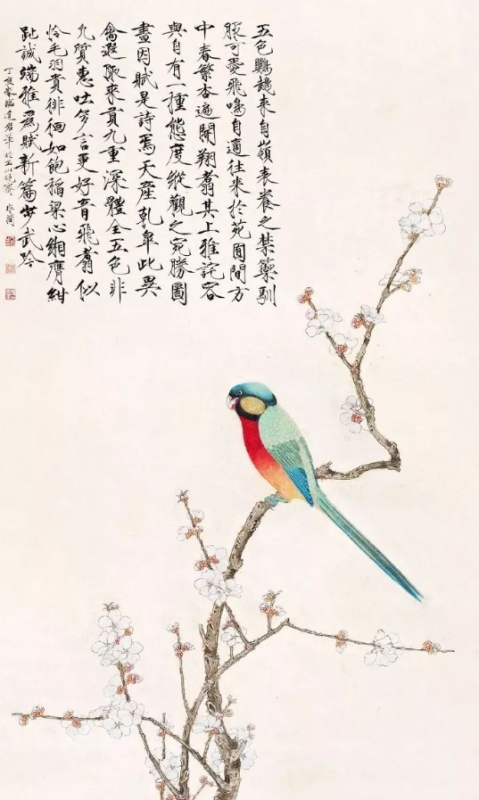 五色鸚鵡來自嶺表養之禁籞馴
服可愛飛鳴自適往來於苑囿間方
中春繁杏遍開翔翥其上雅詫容
與自有一種態度縱觀之宛勝圖
畫因賦是詩焉天產乾皋此異
禽遐陬來貢九重深體全五色非
凡質惠吐多言更好音飛翥似
怜毛羽貴徘徊如飽稻粱心緗膺紺
趾誠端雅為賦新篇步武吟
臨道君筆於玉山